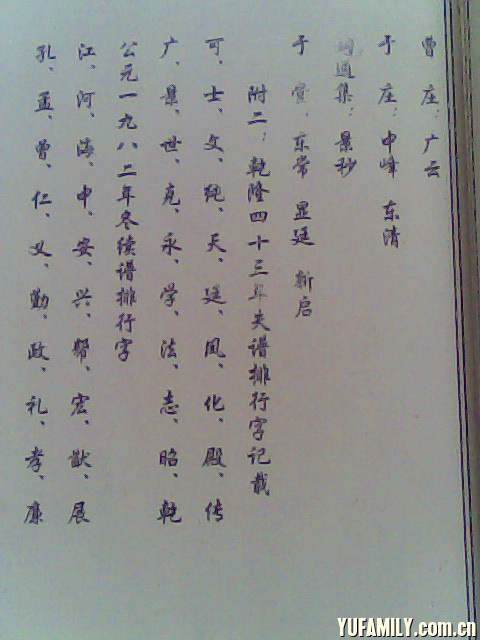 曹庄：广云
于庄：中峰 东清
通集：景秒
于官：东常 显廷 新启
附二：乾隆四十三年夹谱排行字记载
可、士、文、纯、天、廷、凤、化、殿、传
广、景、世、克、永、学、法、志、昭、乾
公元一九八二年冬续谱排行字
江、河、海、中、安、兴、帮、宏、猷、展
孔、孟、曾、仁、义、勤、政、礼、孝、廉
YUFAMILY.com.cn